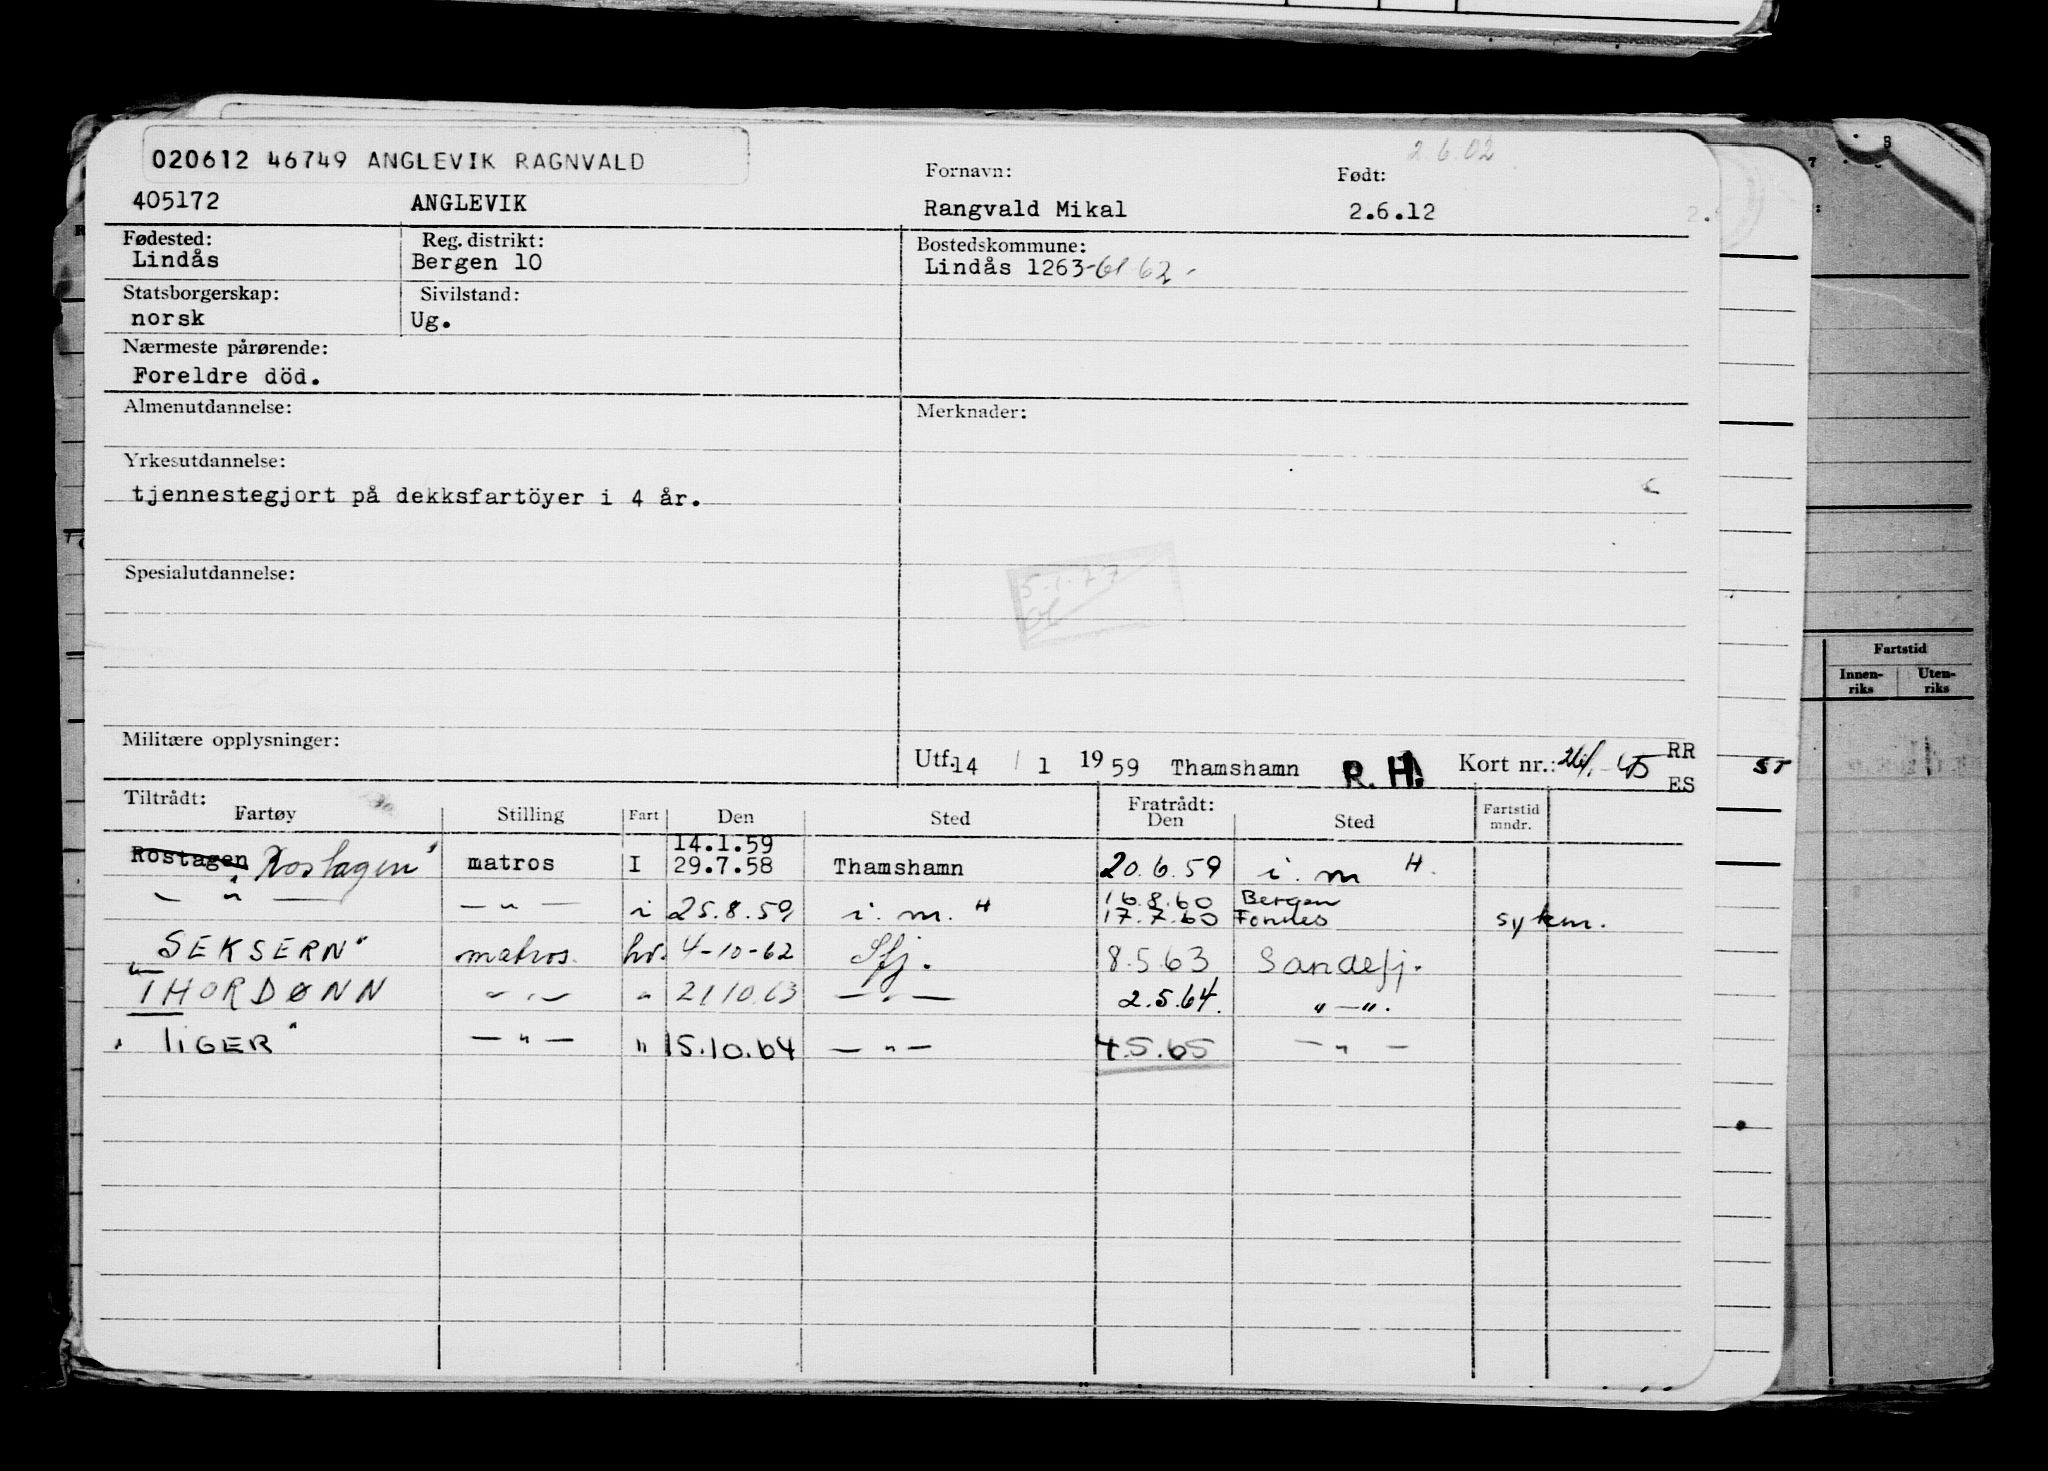 020612 46749 ANGLEVIK RAGNVALD
2.6.02
Fornavn: Født:
405172 ANGLEVIK Rangvald Mikal 2.6.12
Fødested: Reg. distrikt: Bostedskommune:
Lindås Bergen 10 Lindås 1263-61-62-
Statsborgerskap: Sivilstand:
norsk Ug.
Nærmeste pårørende:
Foreldre död.
Almenutdannelse: Merknader:
Yrkesutdannelse:
tjennestegjort på dekksfartöyer i 4 år.
Spesialutdannelse:
5.1.77
Militære opplysninger:
Utf. 14 / 1 1959 Thamshamn R. H. Kort nr.: RR
ES
ST
Tiltrådt: Fratrådt:
Fartøy Stilling Fart Den Sted Den Sted Fartstid mndr.
14.1.59
Rostagen Roslagen" matros I 29.7.58 Thamshamn 20.6.59 i. m H.
16.8.60 Bergen
— " — — " — i 25.8.59 i. m. H 17.7.60 Fonnes sykm.
"SEKSERN" matros hv. 4-10-62 Sfj. 8.5.63 Sandefj.
THORDØNN — " — " 21/10.63 — " — 2.5.64. " — ".
" TiGER" — " — " 15.10.64 — " — 4.5.65 — " —
Fartstid
Innen-riks Uten-riks